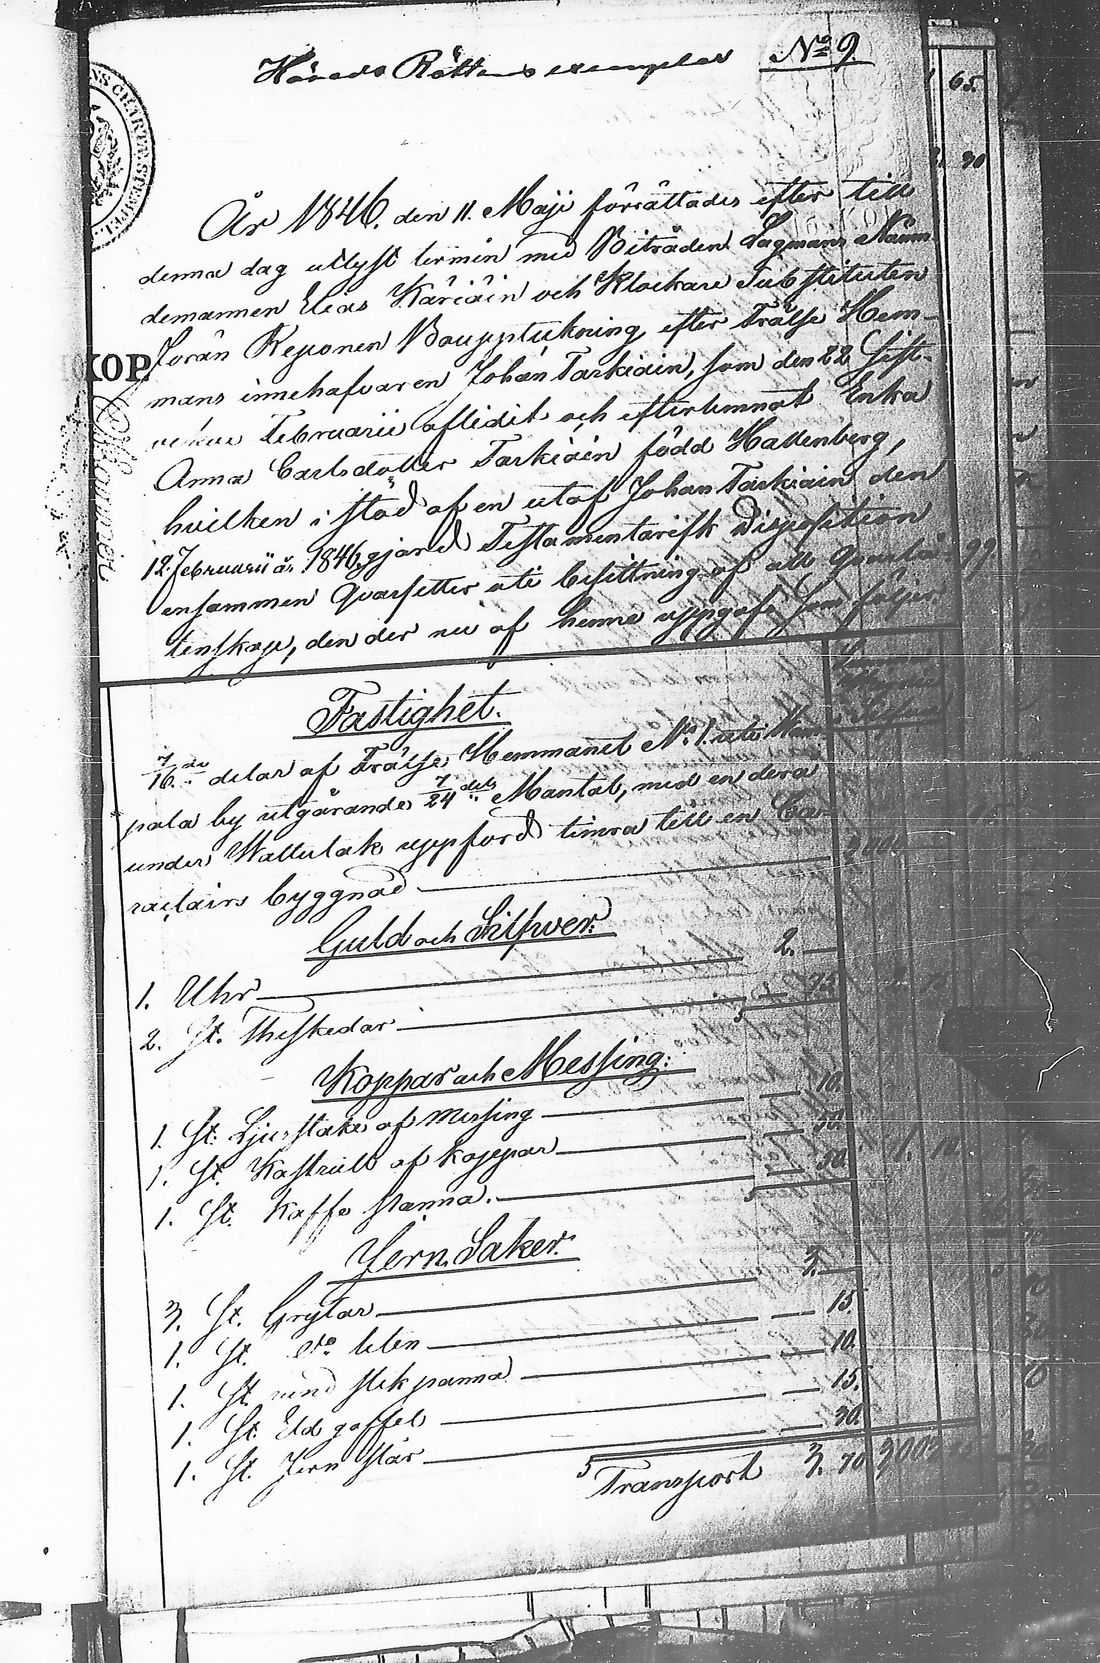 Härads Rättens exemplar No 9
År 1846. den 11. Maji förrättades efter till
denna dag utlyst termin med Biträden Lagmans Näm
demannen Elias Käriäin och Klockare Substituten
Jöran Reponen Bouppteckning efter Frälse Hem-
mans innehafvaren Johan Tarkiain, som den 22 sist-
Februarii aflidit och efterlemnat Enka
Anna Carlsdotter Tarkiain född Hallenberg,
hvilken i stöd af en utaf Johan Tarkiain den
12. Februarii år 1846 gjord Testamentarisk Disposition
ensammen qvarsitter uti besittning af all qvarlå
tenskap, den der nu af henne uppgafs som följer
Fastighet.
7/16 de delar af Frälse Hemmanet No 1. uti
pala by utgörande 7/24 dels Mantal, med en dera
under Wattutak uppförd timra till en Ca-
racters byggnad
Guld och Silfwer.
1. Uhr 2. —
2. St. Theskedar — 75.
Koppar och Messing.
1. St. Ljusstake af messing — 10.
1. St. Kastrull af koppar — 50.
1. St. Kaffe panna. — 50.
Jern Saker.
3. St. Grytor 3. —
1. St. do liten — 15
1. St. rund stekpanna — 10.
1. St. Eld gaffel — 15.
1. St. Jern stör — 30.
Transport 3. 70
KOP